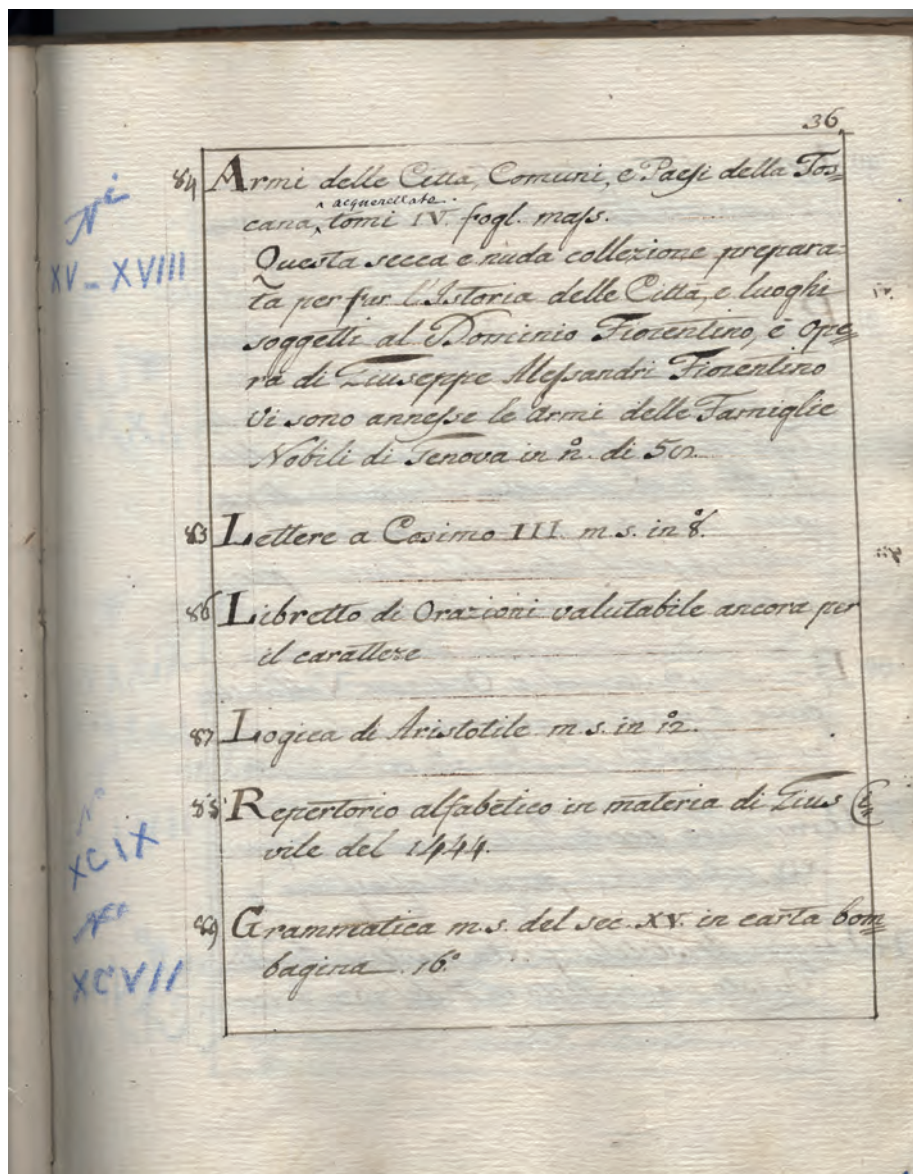 36
84 Armi delle Città, Comuni, e Paesi della Tos=
acquerellate
cana, tomi IV. fogl. mass.
Questa secca e nuda collezione prepara=
ta per fur l'Istoria delle Città, e luoghi
soggetti al Dominio Fiorentino, è Ope=
ra di Giuseppe Alessandri Fiorentino
Vi sono annesse le Armi delle Famiglie
Nobili di Genova in n. di
Ni
XV - XVIII
85 Lettere a Cosimo III. m.s. in 8.º
86 Libretto di Orazioni valutabile ancora per
il carattere
87 Logica di Aristotile m.s. in 12.º
88 Repertorio alfabetico in materia di Gius Ci=
vile del 1444.
Nº
XCIX
89 Grammatica m.s. del sec. XV. in carta bom=
bagina 16.º
Nº
XCVII